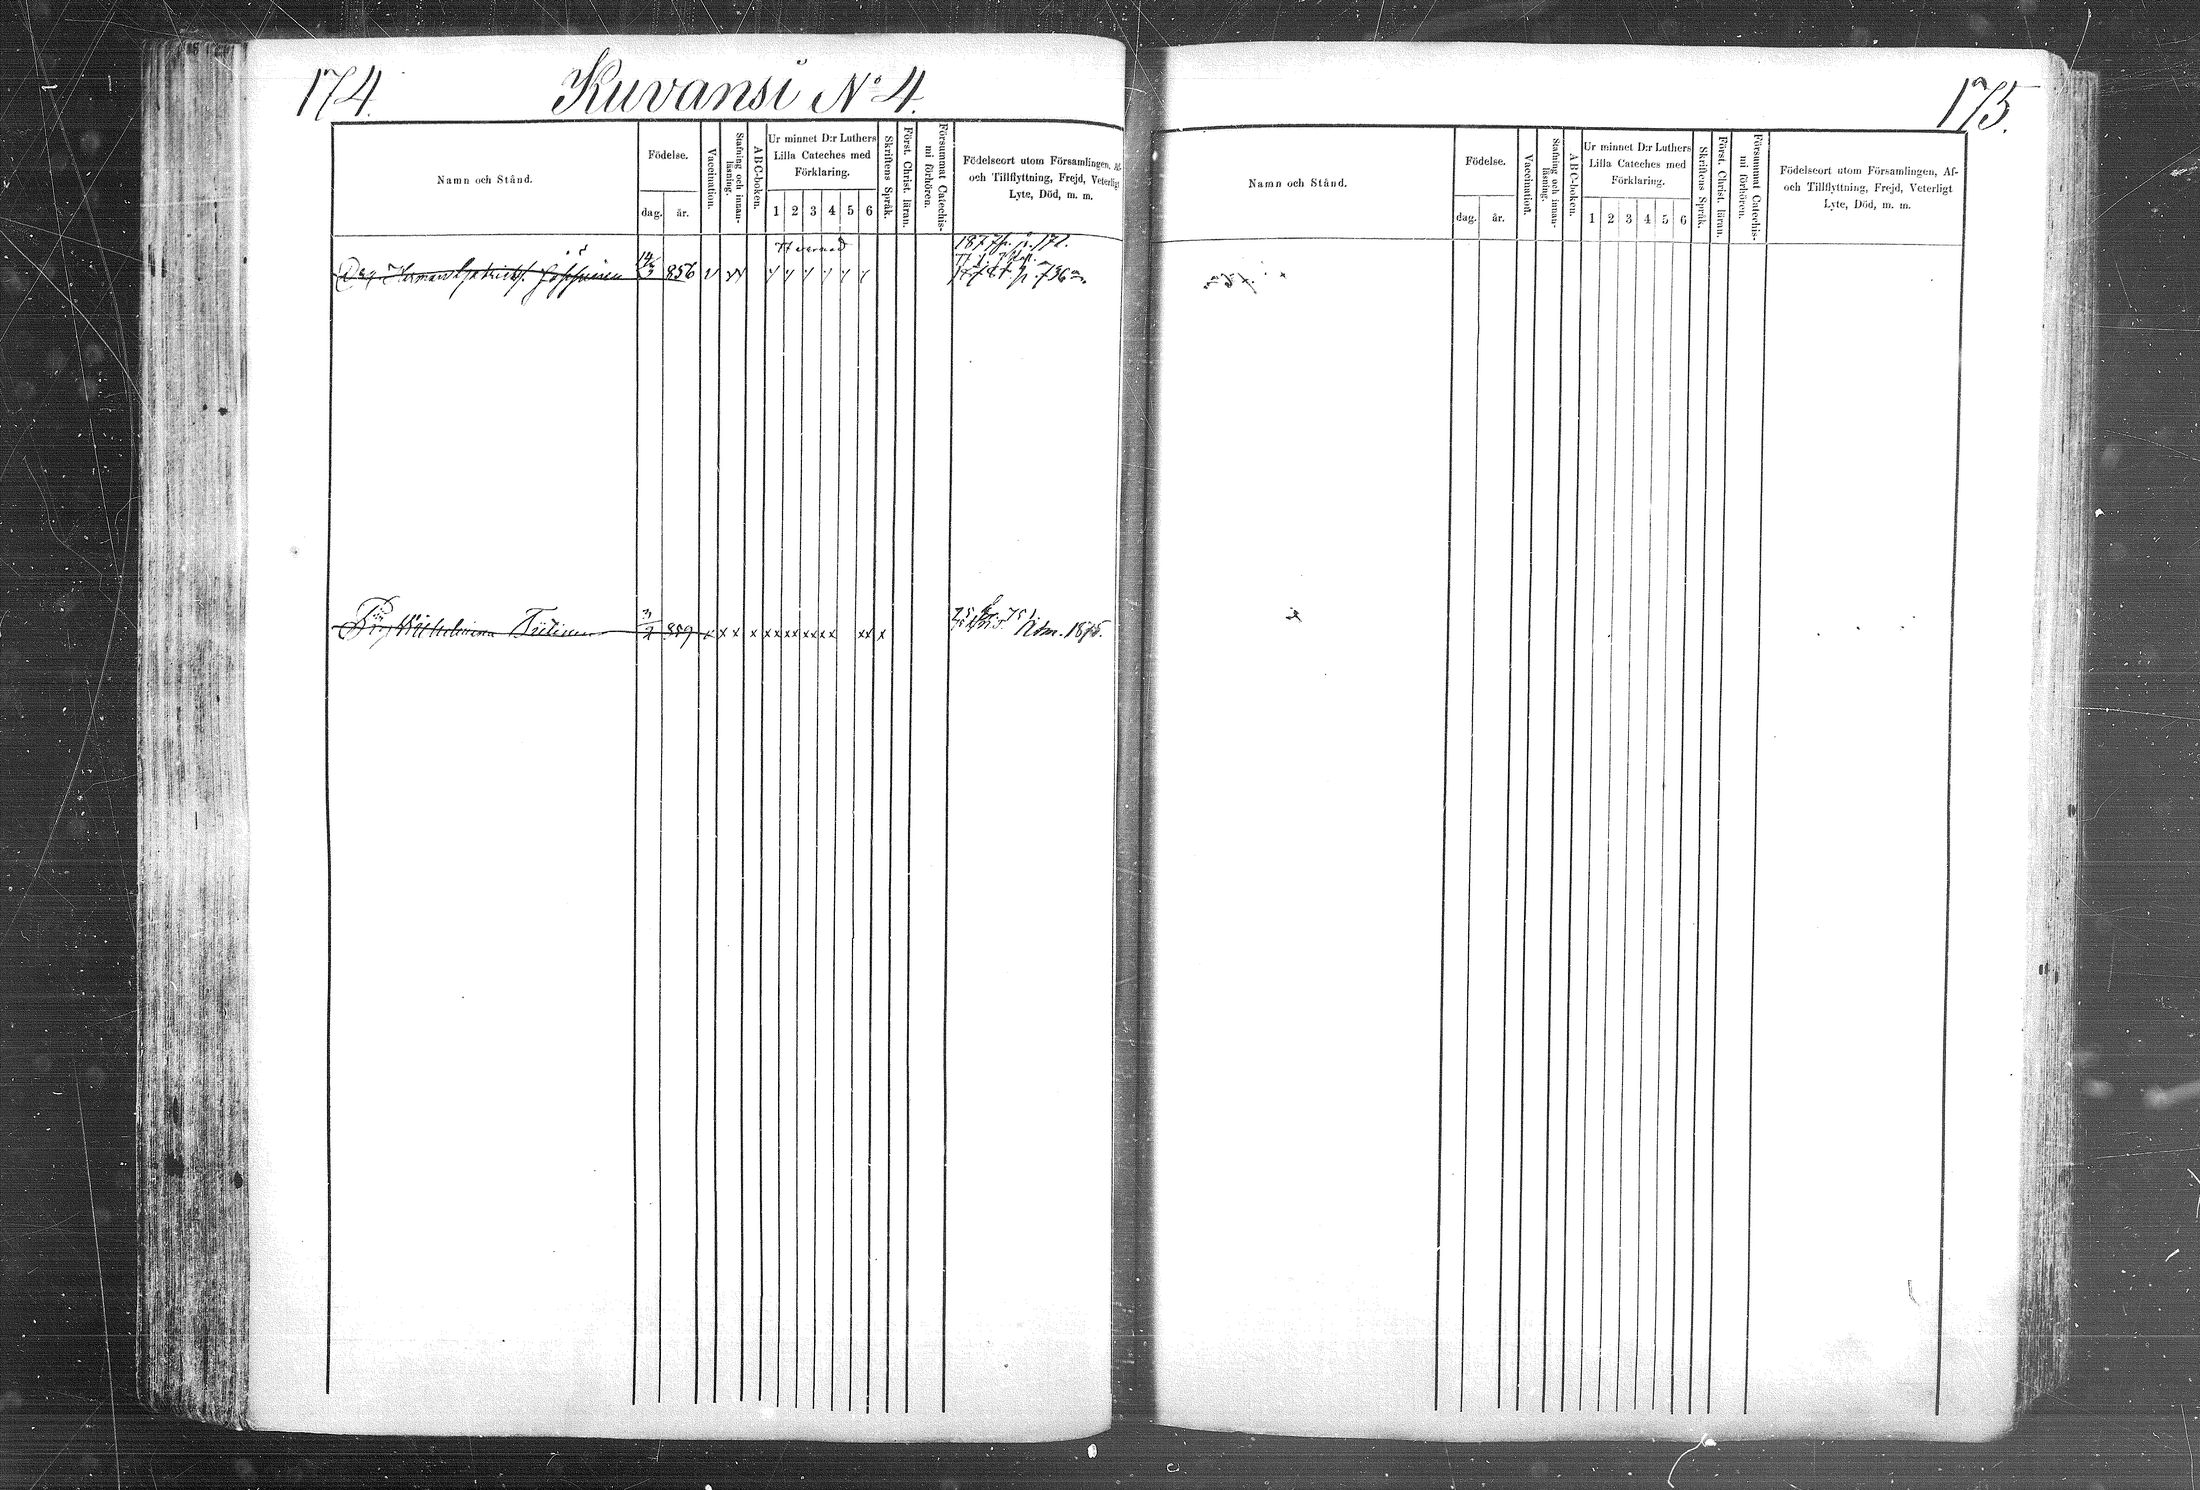 174.
Kuvansi No 4.
Namn och Stånd.
Födelse.
dag.
år.
Vaccination.
Stafning och innan-
läsning.
ABC-boken.
Ur minnet D:r Luthers
Lilla Cateches med
Förklaring.
1 2 3 4 5 6
Skriftens Språk.
Först. Christ. läran.
Försummat Catechis-
mi förhören.
Födelseort utom Församlingen, Af-
och Tillflyttning, Frejd, Veterligt
Lyte, Död, m. m.
1877 fr. p. 172.
Herman Jöskinen 856 p. 736
Wilhelmina Tiilinen 3/2 859 x x x x xx xx xx xx xx x
Utm. 1875.
175.
Namn och Stånd.
Födelse.
dag.
år.
Vaccination.
Stafning och innan-
läsning.
ABC-boken.
Ur minnet D:r Luthers
Lilla Cateches med
Förklaring.
1 2 3 4 5 6
Skriftens Språk.
Först. Christ. läran.
Försummat Catechis-
mi förhören.
Födelseort utom Församlingen, Af-
och Tillflyttning, Frejd, Veterligt
Lyte, Död, m. m.